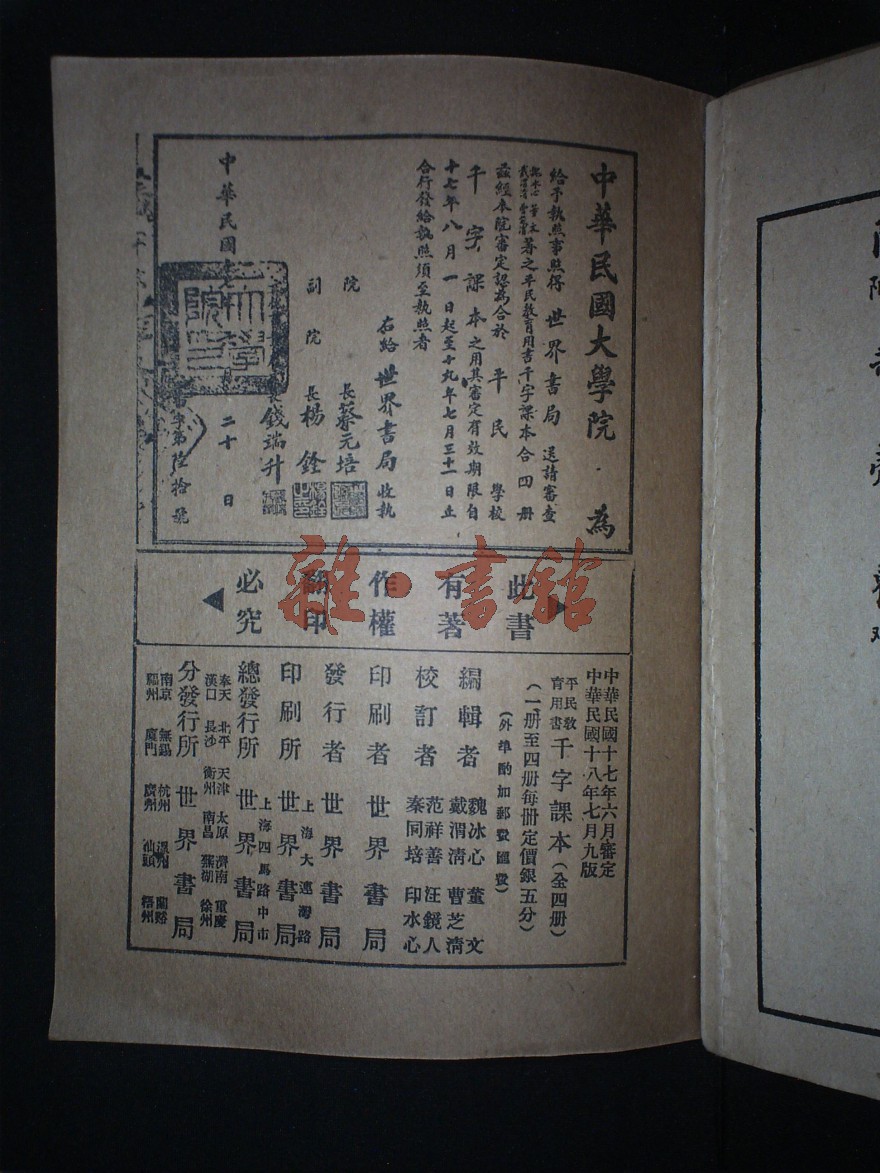 中華民國大學院 為
給予執照事照得 世界書局 送請審查
魏冰心等
著之平民教育用書千字課本合四册
茲經本院審定認為合於 平民 學校
千字課本之用其審定有效期限自
十七年八月一日起至十九年七月三十一日止
合行發給執照須至執照者
右給世界書局收執
院長蔡元培
副院長楊銓
長錢瑞升
中華民國
二十日
字第陸拾號
此書有著作權翻印必究
中華民國十七年六月審定
中華民國十八年七月九版
平民教育用書 千字課本（全四册）
（一册至四册每册定價銀五分）
（外埠酌加郵費匯費）
編輯者 魏冰心 董文 戴渭清 曹芝清
校訂者 范祥善 汪鏡人 秦同培 印水心
印刷者 世界書局
發行者 世界書局
印刷所 上海大連灣路 世界書局
總發行所 上海四馬路中市 世界書局
奉天 北平 天津 太原 濟南 重慶
漢口 長沙 衡州 南昌 蕪湖 徐州
分發行所 世界書局
南京 無錫 杭州 溫州 蘭谿
福州 廈門 廣州 汕頭 梧州
雜·書館